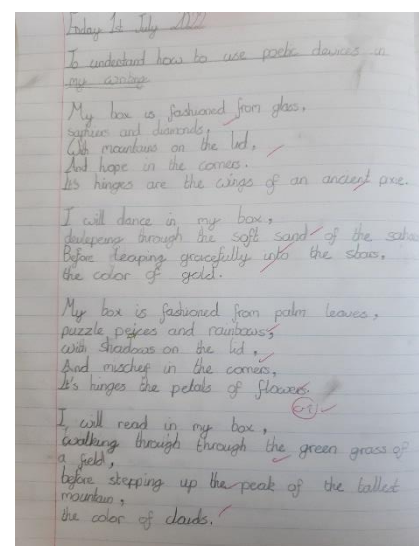 Friday 1st July 2022
To understand how to use poetic devices in
my writing
My box is fashioned from glass,
saphiers and diamonds,
With mountains on the lid,
And hope in the corners.
Its hinges are the wings of an ancient pixie.
I will dance in my box,
through the soft sand of the
Before leaping gracefully into the stars,
the color of gold.
My box is fashioned from palm leaves,
puzzle peices and rainbows,
with shadows on the lid,
And mischef in the corners,
It's hinges the petals of flowers.
I will read in my box,
walking through through the green grass of
a field,
before stepping up the peak of the tallest
mountain,
the color of clouds.